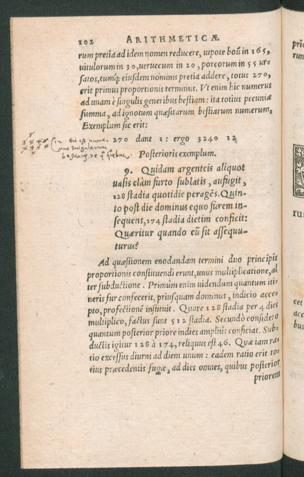 102 ARITHMETICÆ
rum pretia ad idem nomen reducere, utpote boũ in 165,
uitulorum in 30, ueruecum in 20, porcorum in 55
satos, tumq; eiusdem nominis pretia addere, totus 270,
erit primus proportionis terminus. Vt enim hic numerus
ad unam è singulis generibus bestiam: ita totius pecuniæ
summa, ad ignotum quæsitarum bestiarum numerum,
Exemplum sic erit:
270 dant 1: ergo 3240 12
Posterioris exemplum.
9. Quidam argenteis aliquot
uasis clàm furto sublatis, aufugit,
128 stadia quotidie peragẽs. Quin-
to post die dominus equo furem in-
sequens, 174 stadia dietim conficit:
Quæritur quando eũ sit assequu-
turus?
Ad quæstionem enodandam termini duo principiò
proportionis constituendi erunt, unus multiplicatione, al
ter subductione. Primùm enim uidendum quantum iti-
neris fur confecerit, priusquam dominus, indicio acce-
pto, profectionẽ instituit. Quare 128 stadia per 4 dies
multiplico, factus sunt 512 stadia. Secundò considero
quantum posterior priore indies ampliùs conficiat. Sub
ductis igitur 128 à 174, reliquus est 46. Quæ iam ra-
tio excessus diurni ad diem unum: eadem ratio erit to-
tius præcedentis fugæ, ad dies omnes, quibus posterior
priorem